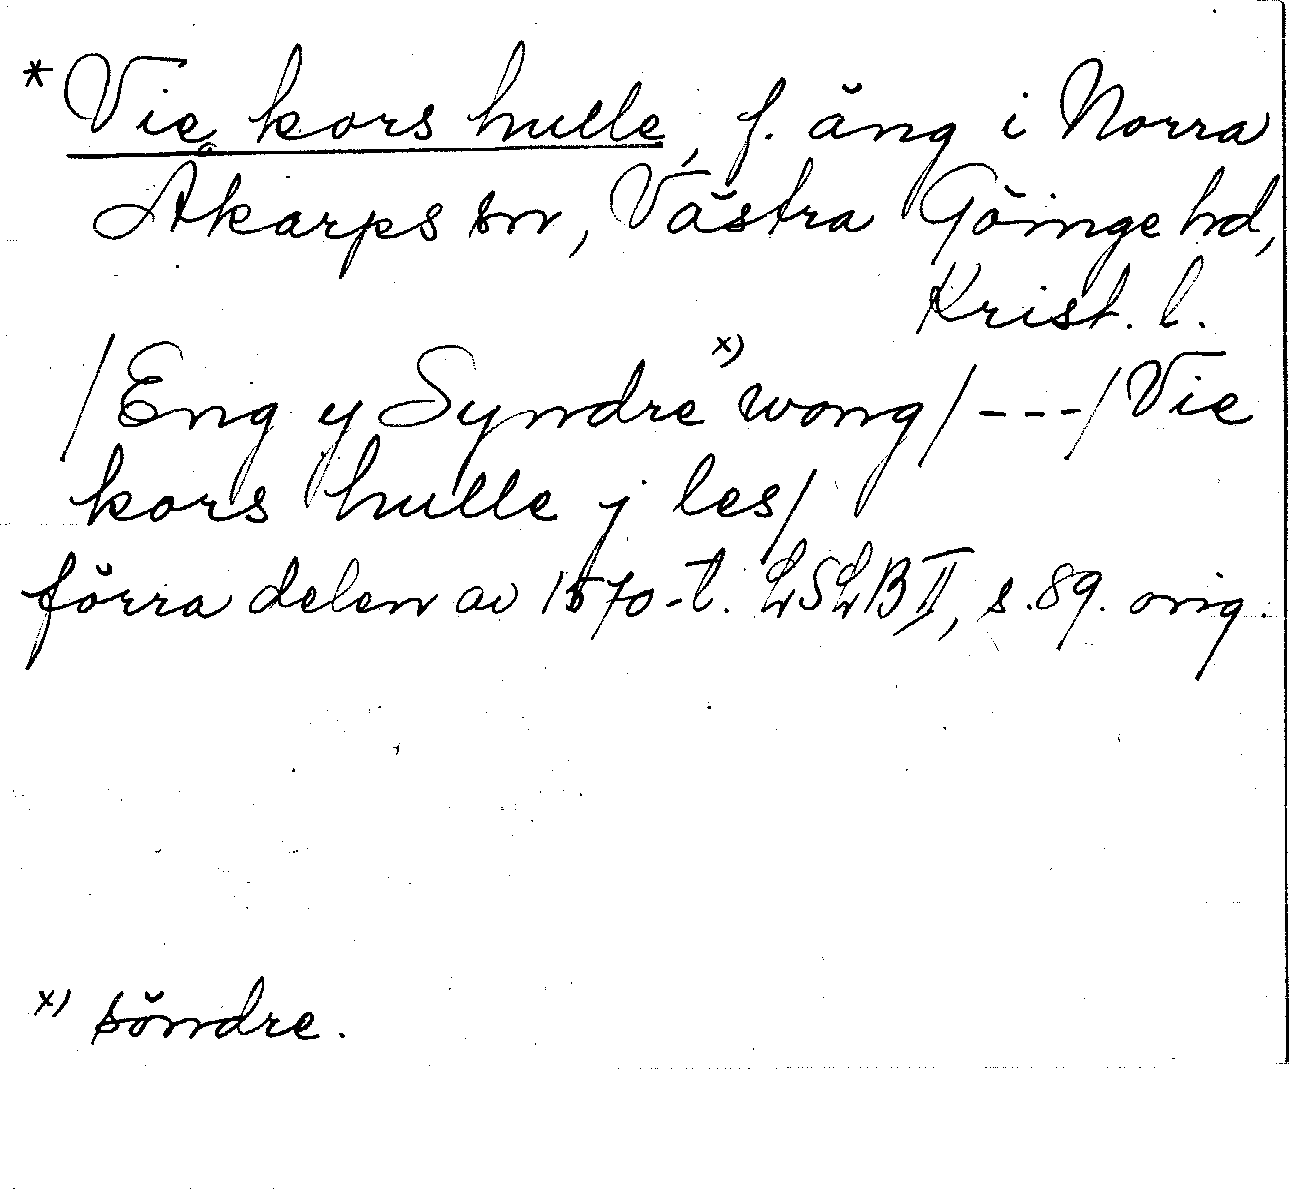 *Vie kors hulle, f. äng i Norra
Åkarps sn, Västra Göinge hd,
Krist. l.
/Eng y Syndre x) wong/---/Vie
kors hulle j les/
förra delen av 1570-t. LSLB II, s. 89. orig.
x) söndre.